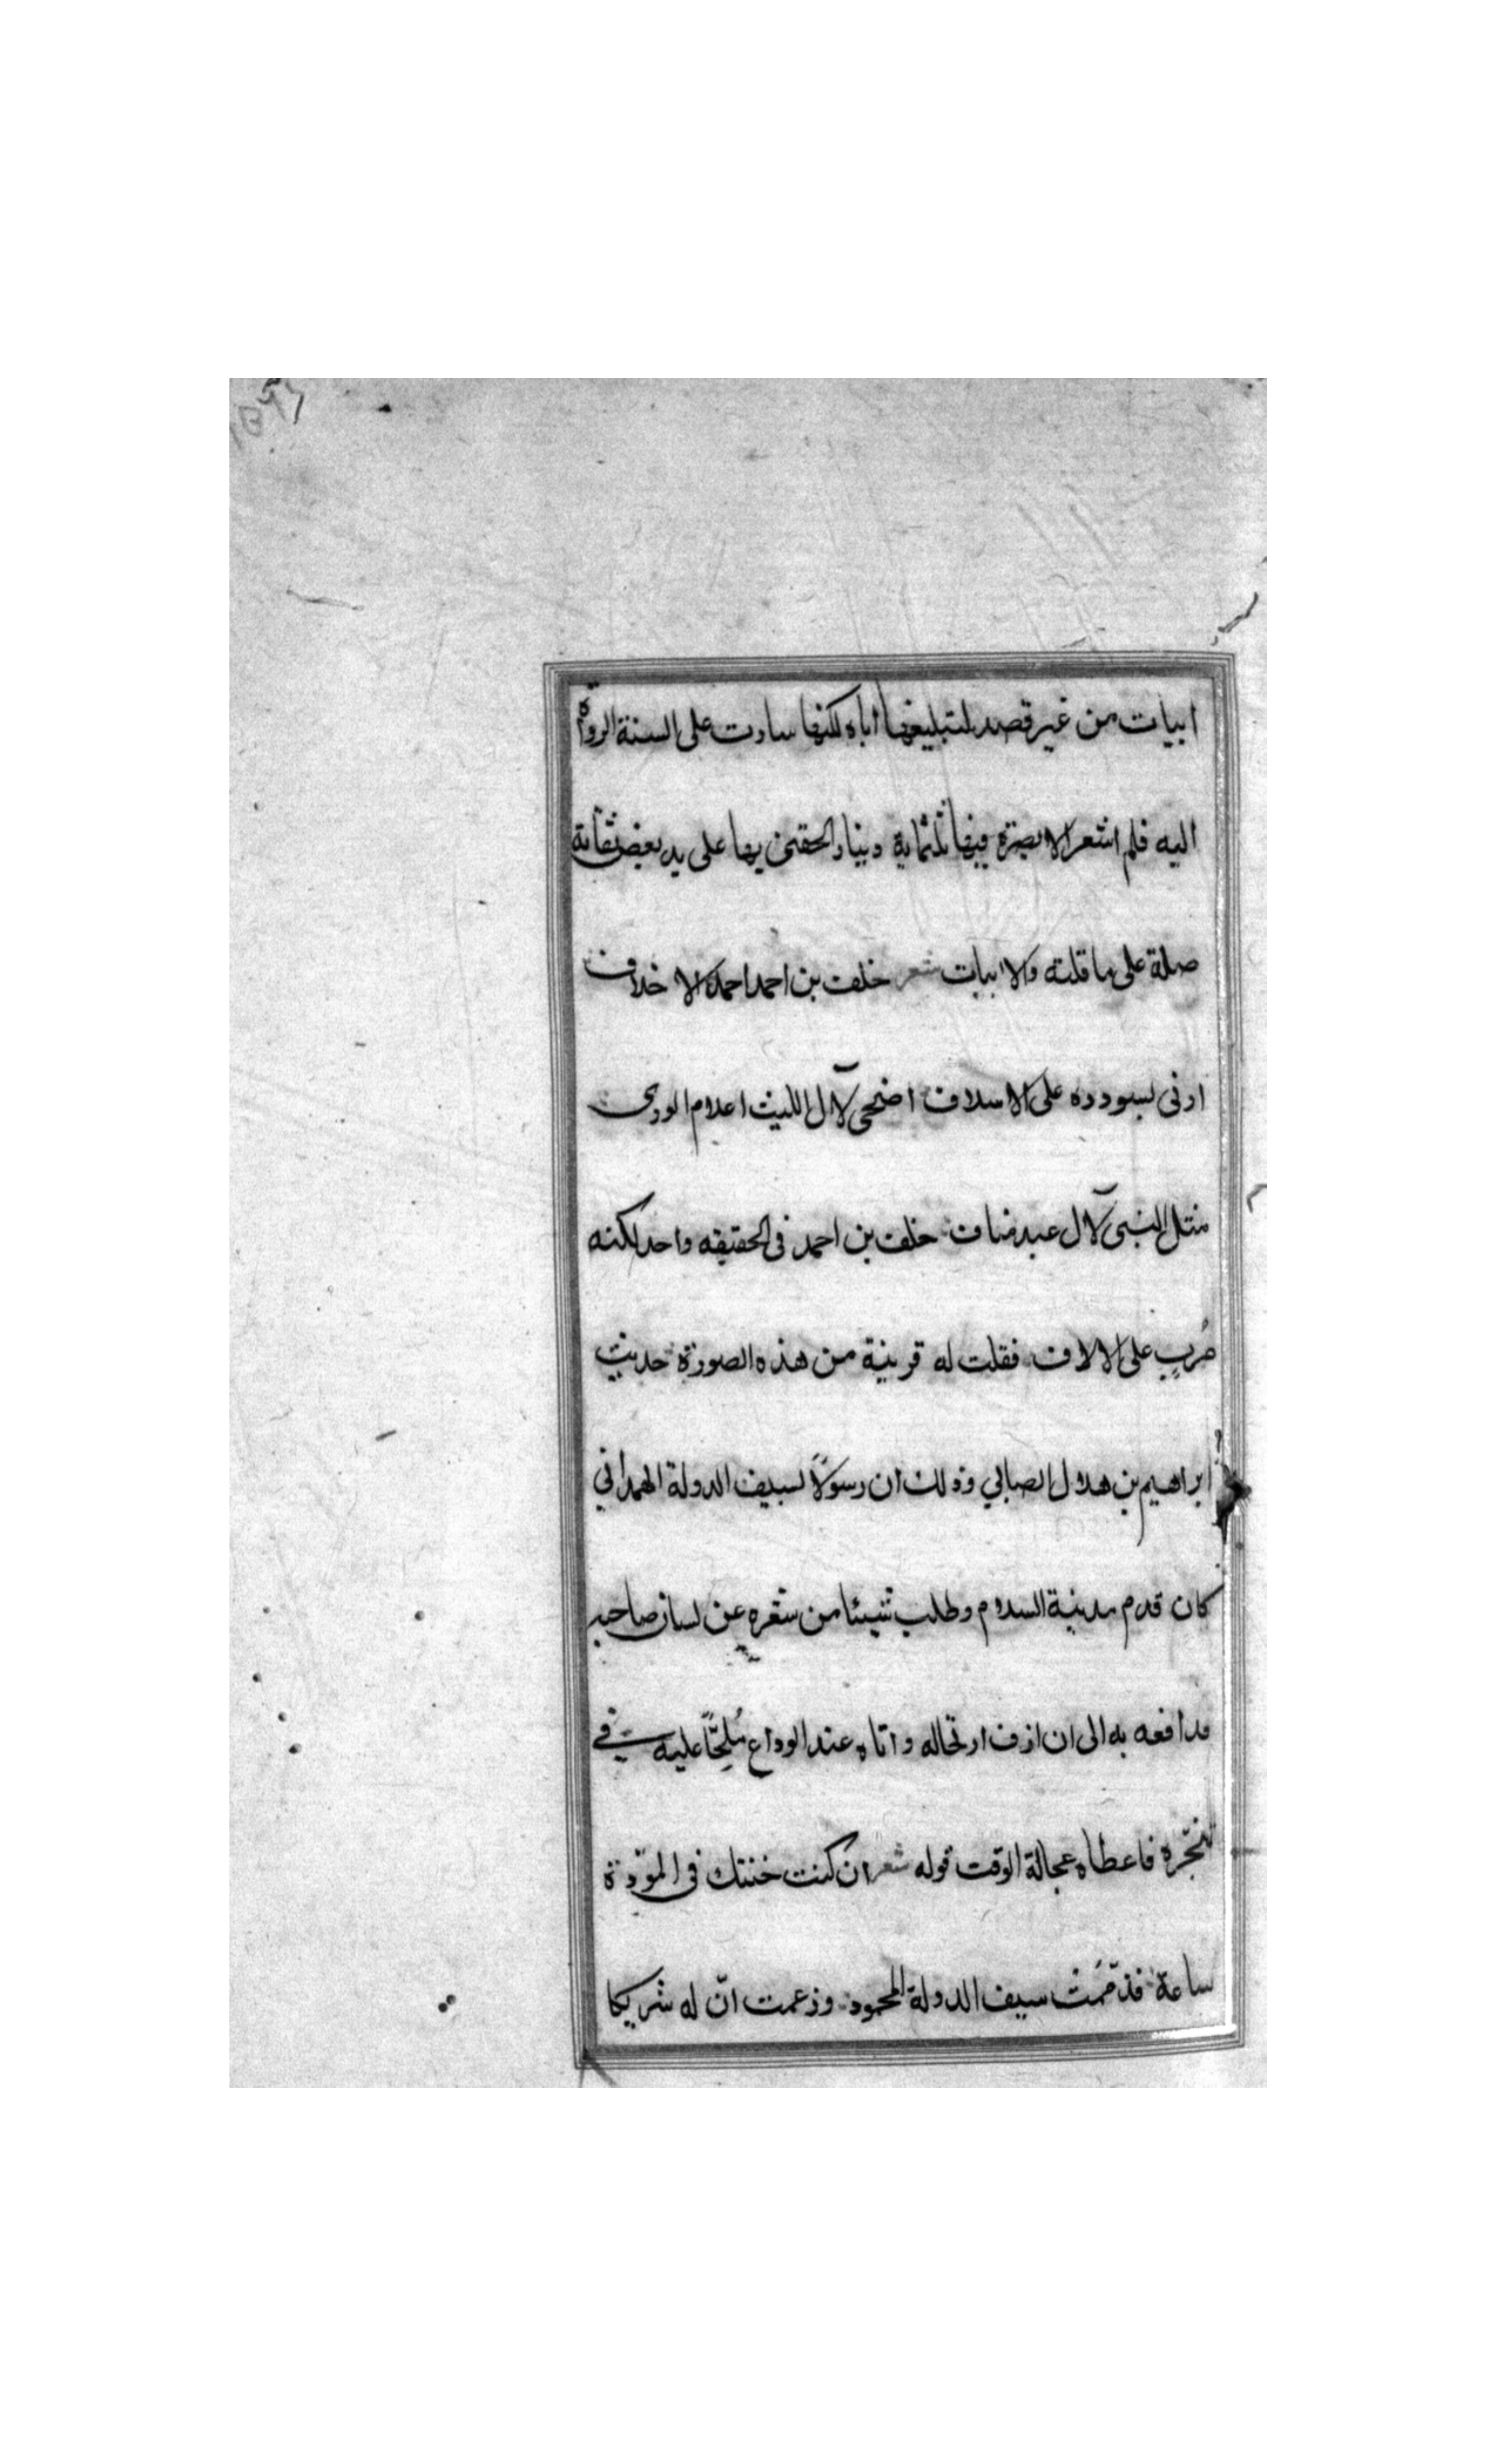 ابيات من غير قصد لتبليغها اباه لكنها سارت على السنة الرواة
اليه فلم اشعر الا بصرة فيها ثلثماية دينار الحقنى بها على يد بعض ثقاته
صلة على ما قلته والابيات شعر خلف بن احمد احمد الاخلاف
اربى بسودده على الاسلاف اضحى لآل الليث اعلام الورى
مثل النبى لآل عبد مناف خلف بن احمد فى الحقيقه واحد لكنه
مُربٍ على الالاف فقلت له قرينة من هذه الصورة حديث
ابراهيم بن هلال الصابي وذلك ان رسولًا لسيف الدولة الهمداني
كان قدم مدينة السلام وطلب شيئا من شعره عن لسان صاحبه
فدافعه به الى ان ازف ارتحاله واتاه عند الوداع مُلِحًّا عليه في
تنجّزه فاعطاه عجالة الوقت قوله شعر ان كنت خنتك فى المودّة
ساعة فذممُت سيف الدولة المحمود وزعمت انّ له شريكا